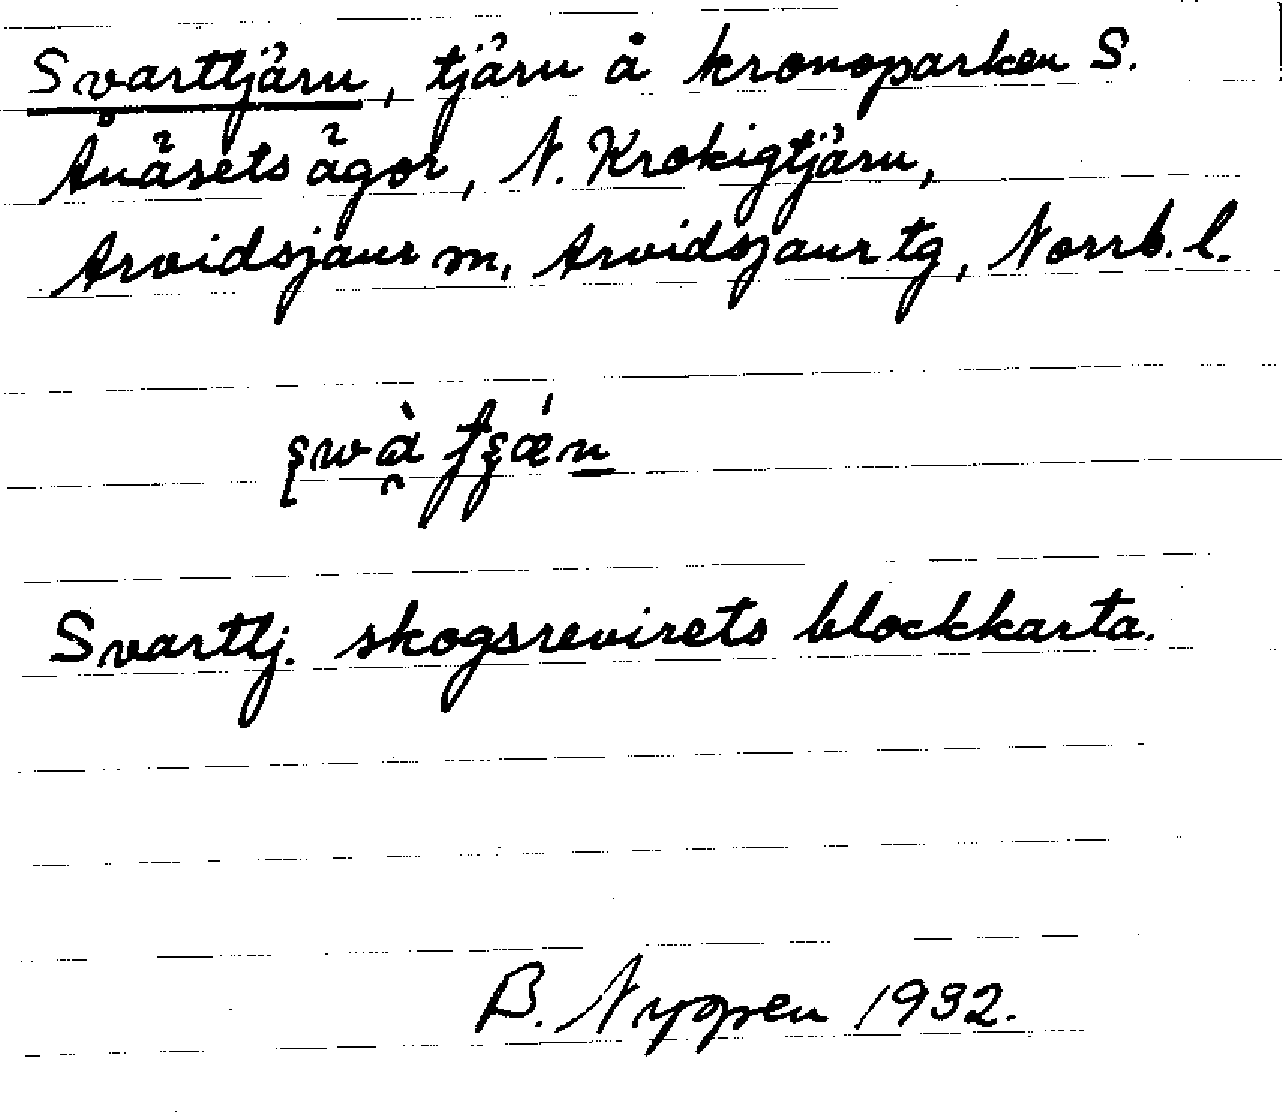 Svarttjärn, tjärn å kronoparken S.
Ånäsets ägor, N. Krokigtjärn,
Arvidsjaur sn, Arvidsjaur tg, Norrb. l.
Svarttj. skogsrevirets blockkarta.
B. Nygren 1932.